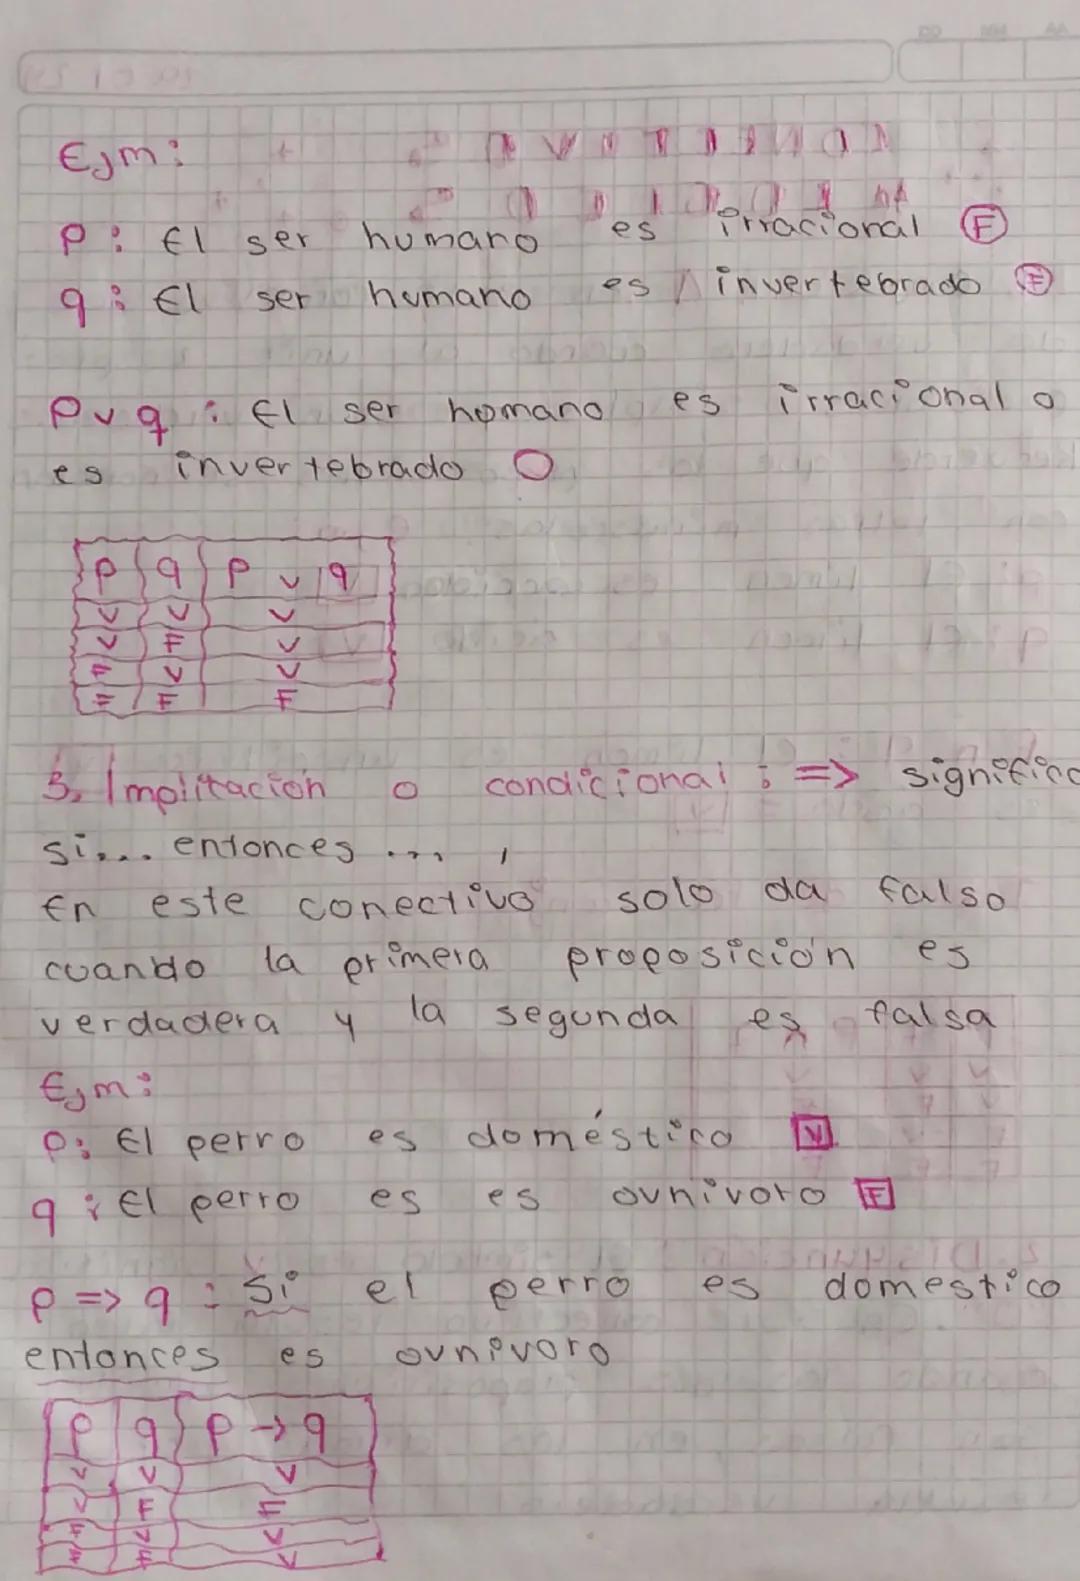 Ejm:
p: El ser humano es irracional F
q: El ser humano es invertebrado F
p v q : El ser homano es irracional o
es invertebrado
p q p v q
V V V
V F V
F V V
F F F
3. Implitación o condicional : => significa
si... entonces ... ,
En este conectivo solo da falso
cuando la primera proposición es
verdadera y la segunda es falsa
Ejm:
p: El perro es doméstico V
q: El perro es es ovnivoro F
p => q : Si el perro es domestico
entonces es ovnivoro
p q p → q
V V V
V F F
F V V
F F V